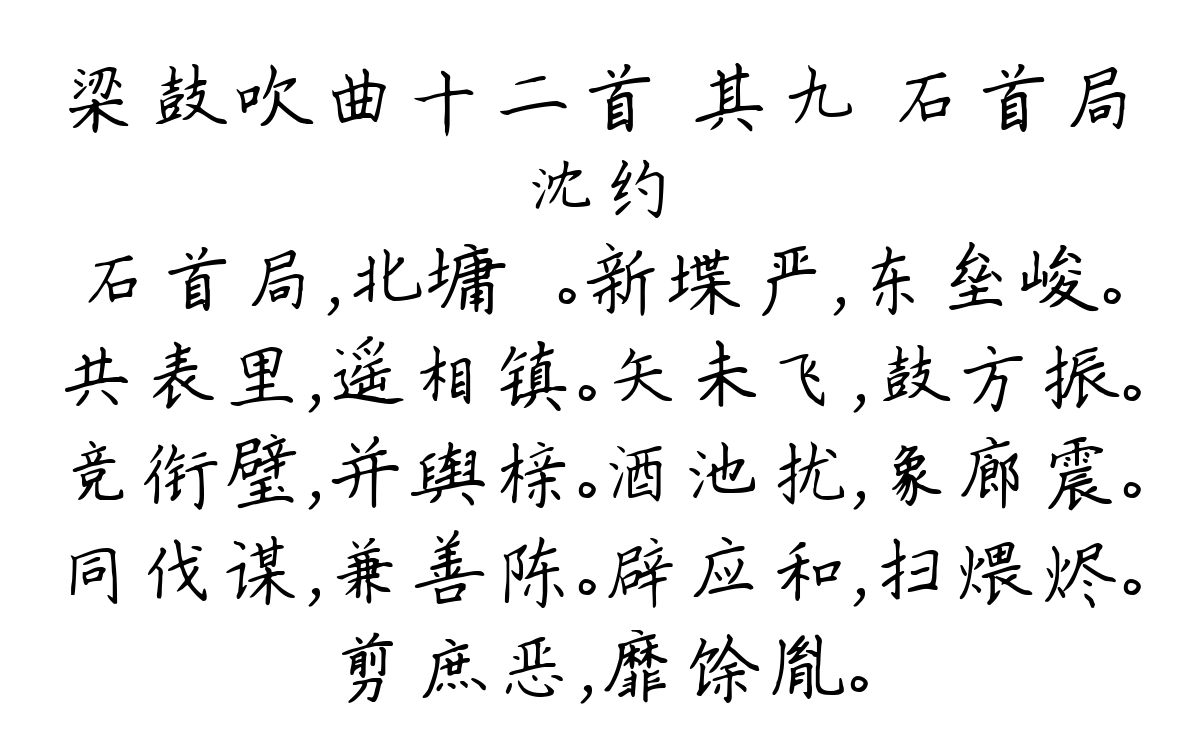 梁鼓吹曲十二首 其九 石首局
沈约
石首局,北墉 。新堞严,东垒峻。
共表里,遥相镇。矢未飞,鼓方振。
竞衔璧,并舆榇。酒池扰,象廊震。
同伐谋,兼善陈。辟应和,扫煨烬。
剪庶恶,靡馀胤。